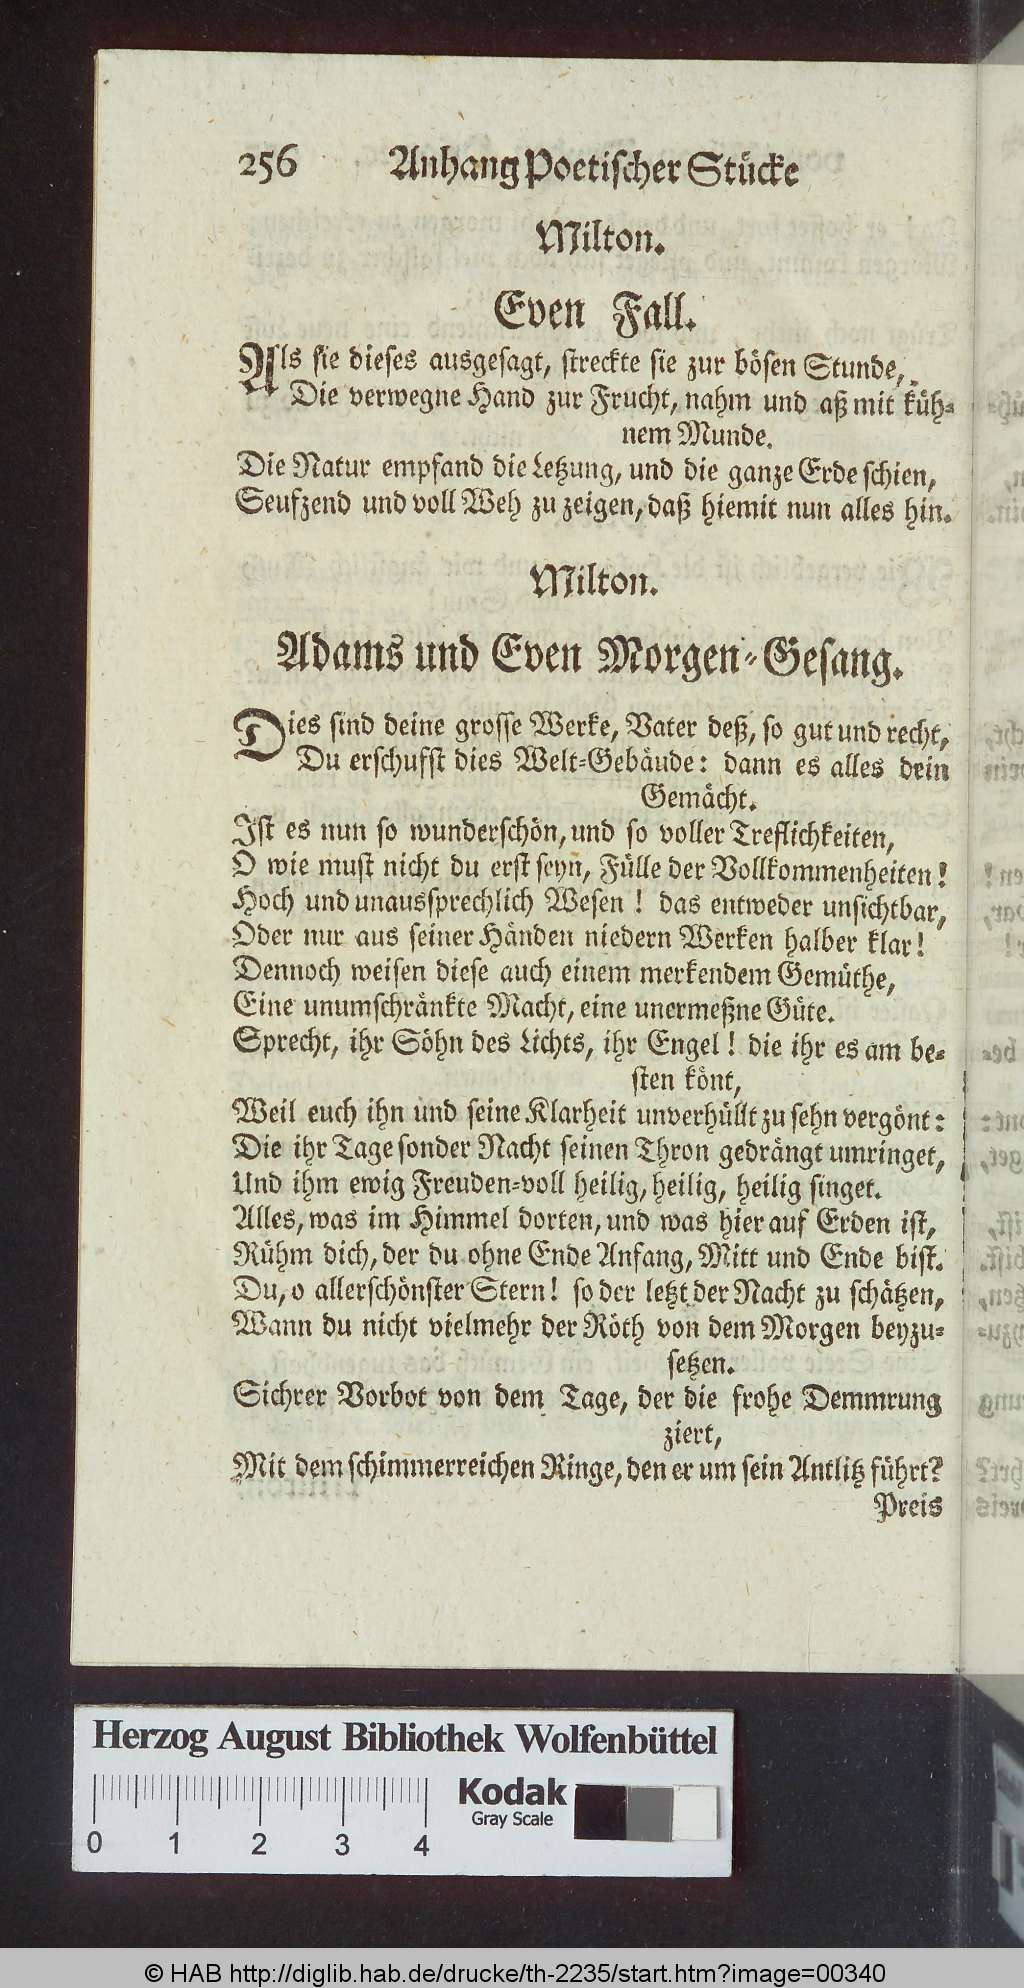 256 Anhang Poetischer Stücke
Milton.
Even Fall.
Als sie dieses ausgesagt, streckte sie zur bösen Stunde,
Die verwegne Hand zur Frucht, nahm und aß mit küh-
nem Munde.
Die Natur empfand die Letzung, und die ganze Erde schien,
Seufzend und voll Weh zu zeigen, daß hiemit nun alles hin.
Milton.
Adams und Even Morgen-Gesang.
Dies sind deine grosse Werke, Vater deß, so gut und recht,
Du erschufst dies Welt-Gebäude: dann es alles dein
Gemächt.
Ist es nun so wunderschön, und so voller Treflichkeiten,
O wie must nicht du erst seyn, Fülle der Vollkommenheiten!
Hoch und unaussprechlich Wesen! das entweder unsichtbar,
Oder nur aus seiner Händen niedern Werken halber klar!
Dennoch weisen diese auch einem merkendem Gemüthe,
Eine unumschränkte Macht, eine unermeßne Güte.
Sprecht, ihr Söhn des Lichts, ihr Engel! die ihr es am be-
sten könt,
Weil euch ihn und seine Klarheit unverhüllt zu sehn vergönt:
Die ihr Tage sonder Nacht seinen Thron gedrängt umringet,
Und ihm ewig Freuden-voll heilig, heilig, heilig singet.
Alles, was im Himmel dorten, und was hier auf Erden ist,
Rühm dich, der du ohne Ende Anfang, Mitt und Ende bist.
Du, o allerschönster Stern! so der letzt der Nacht zu schätzen,
Wann du nicht vielmehr der Röth von dem Morgen beyzu-
setzen.
Sichrer Vorbot von dem Tage, der die frohe Demmrung
ziert,
Mit dem schimmerreichen Ringe, den er um sein Antlitz führt?
Preis
Herzog August Bibliothek Wolfenbüttel
Kodak
Gray Scale
0 1 2 3 4
© HAB http://diglib.hab.de/drucke/th-2235/start.htm?image=00340